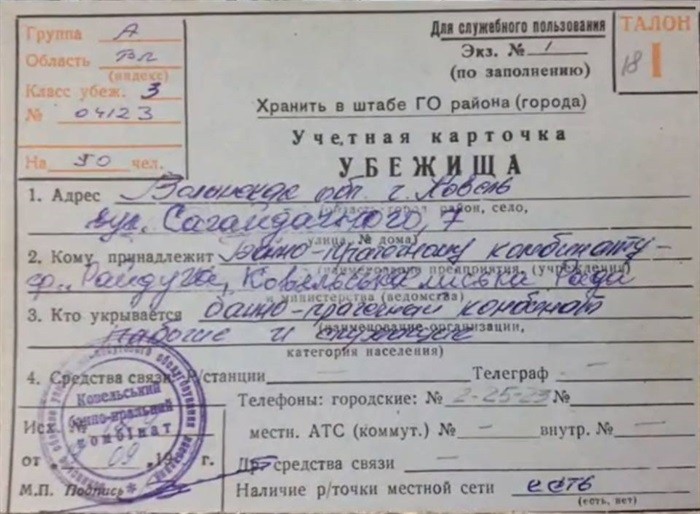 Группа А
Область Вл
(индекс)
Класс убеж. 3
№ 04123
На 50 чел.
Для служебного пользования
Экз. № 1
(по заполнению)
ТАЛОН
18 I
Хранить в штабе ГО района (города)
Учетная карточка
УБЕЖИЩА
1. Адрес Волынская обл. г. Ковель
(область, город, район, село,
вул. Сагайдачного, 7
улица, № дома)
2. Кому принадлежит Банно-прачечному комбинату
(наименование предприятия, (учреждения)
ф. Райдуга, Ковельська міська Ради
и министерства (ведомства)
3. Кто укрывается банно-прачечный комбинат
(наименование организации,
рабочие и служащие
категория населения)
4. Средства связи: Р/станции — Телеграф —
Телефоны: городские: № 2-25-23
местн. АТС (коммут.) № — внутр. № —
Др. средства связи —
Наличие р/точки местной сети есть
(есть, нет)
Ковельський
банно-пральний
комбінат
Исх. №
от 09 19 г.
М.П. Подпись